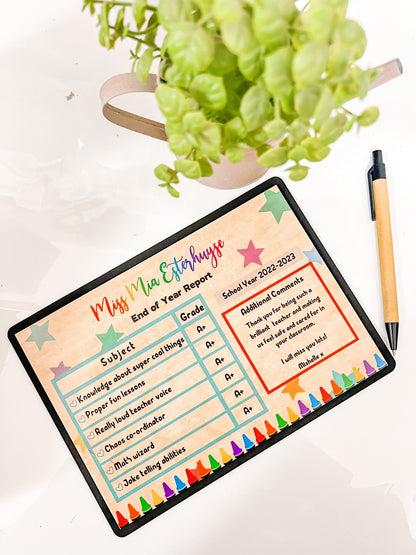 Miss Mia Esterhuyse
End of Year Report
School Year 2022-2023
Subject Grade
Knowledge about super cool things A+
Proper fun lessons A+
Really loud teacher voice A+
Chaos co-ordinator A+
Mat's wizard A+
Joke telling abilities A+
Additional Comments
Thank you for being such a
brilliant teacher and making
us feel safe and cared for in
your classroom.
I will miss you lots!
Michelle x